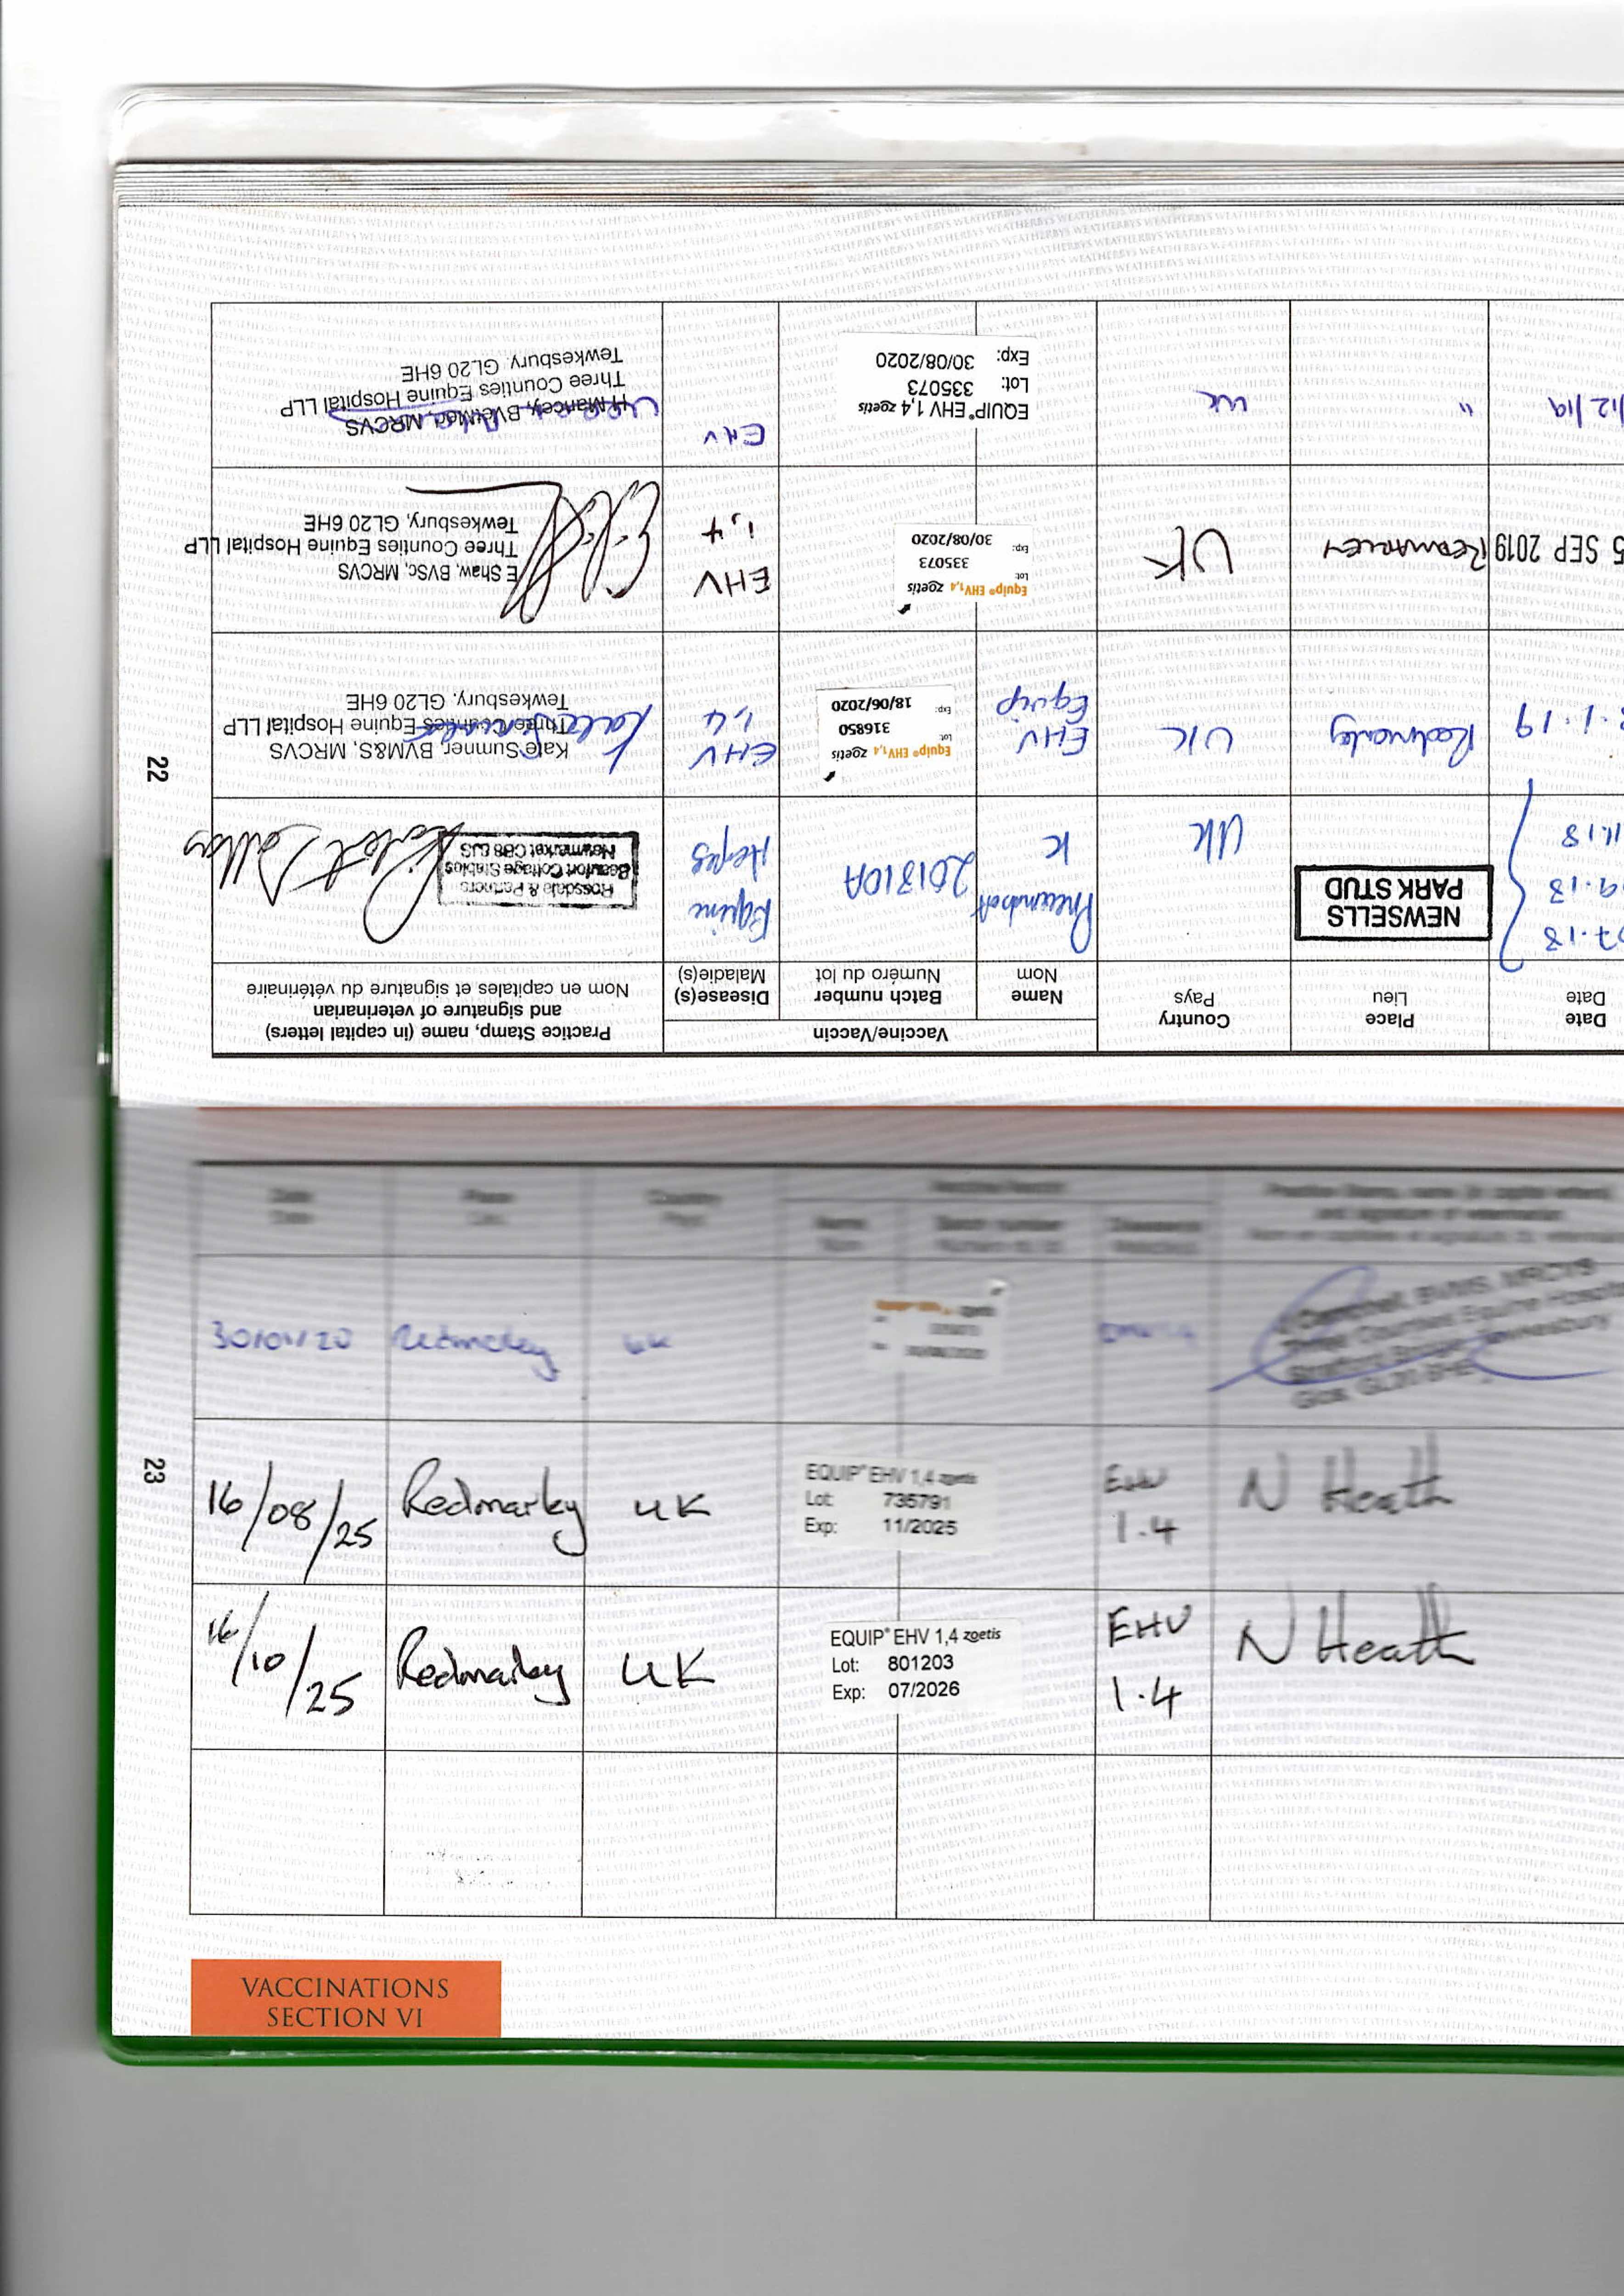 22
Date
Date
Place
Lieu
Country
Pays
Vaccine/Vaccin
Name
Nom
Batch number
Numéro du lot
Disease(s)
Maladie(s)
Practice Stamp, name (in capital letters)
and signature of veterinarian
Nom en capitales et signature du vétérinaire
07.18
9.18
11.18
NEWSELLS
PARK STUD
UK
K
201810A
Equine
Herpes
Rossdale & Partners
Beaufort Cottage Stables
Newmarket CB8 8JS
1.19
Redmarley
UK
EHV
Equip
Equip® EHV 1,4 zoetis
Lot: 316850
Exp: 18/06/2020
EHV
1,4
Kate Sumner, BVM&S, MRCVS
Three Counties Equine Hospital LLP
Tewkesbury, GL20 6HE
5 SEP 2019
Redmarley
UK
Equip® EHV 1,4 zoetis
Lot: 335073
Exp: 30/08/2020
EHV
1,4
E Shaw, BVSc, MRCVS
Three Counties Equine Hospital LLP
Tewkesbury, GL20 6HE
/12/19
"
UK
EQUIP® EHV 1,4 zoetis
Lot: 335073
Exp: 30/08/2020
EHV
H Mancey, BVetMed, MRCVS
Three Counties Equine Hospital LLP
Tewkesbury. GL20 6HE
23
Date
Date
Place
Lieu
Country
Pays
Name
Nom
Batch number
30/01/20
Redmarley
UK
BVMS, MRCVS
Three Counties Equine Hospital
Tewkesbury
Glos. GL20 6HE
16/08/25
Redmarley
UK
EQUIP® EHV 1,4 zoetis
Lot: 735791
Exp: 11/2025
EHV
1.4
N Heath
16/10/25
Redmarley
UK
EQUIP® EHV 1,4 zoetis
Lot: 801203
Exp: 07/2026
EHV
1.4
N Heath
VACCINATIONS
SECTION VI